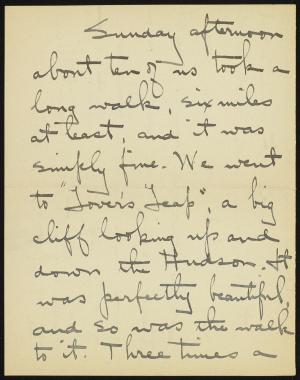 Sunday afternoon
about ten of us took a
long walk, six miles
at least, and it was
simply fine. We went
to "Lover's Leap", a big
cliff looking up and
down the Hudson. It
was perfectly beautiful,
and so was the walk
to it. Three times a